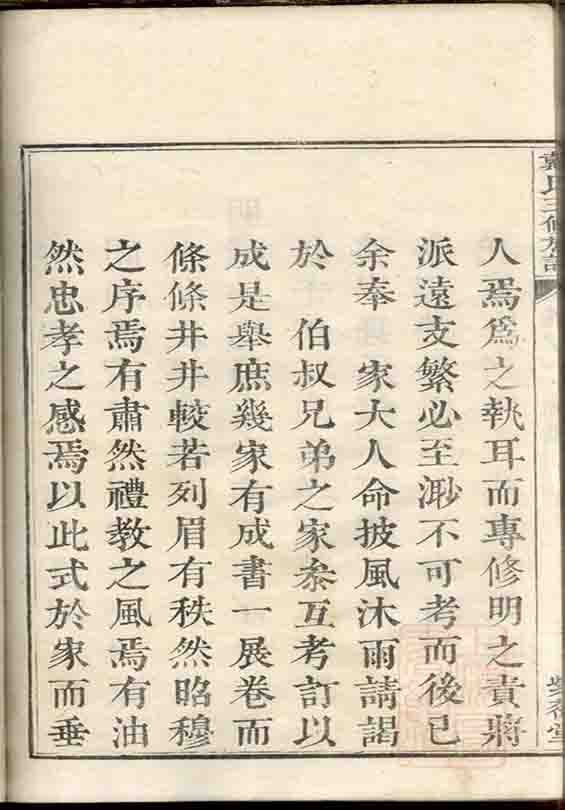 氏三修族譜
人焉爲之執耳而專修明之責將
派遠支繁必至渺不可考而後已
余奉 家大人命披風沐雨請謁
於 伯叔兄弟之家參互考訂以
成是舉庶幾家有成書一展卷而
條條井井較若列眉有秩然昭穆
之序焉有肅然禮教之風焉有油
然忠孝之感焉以此式於家而垂